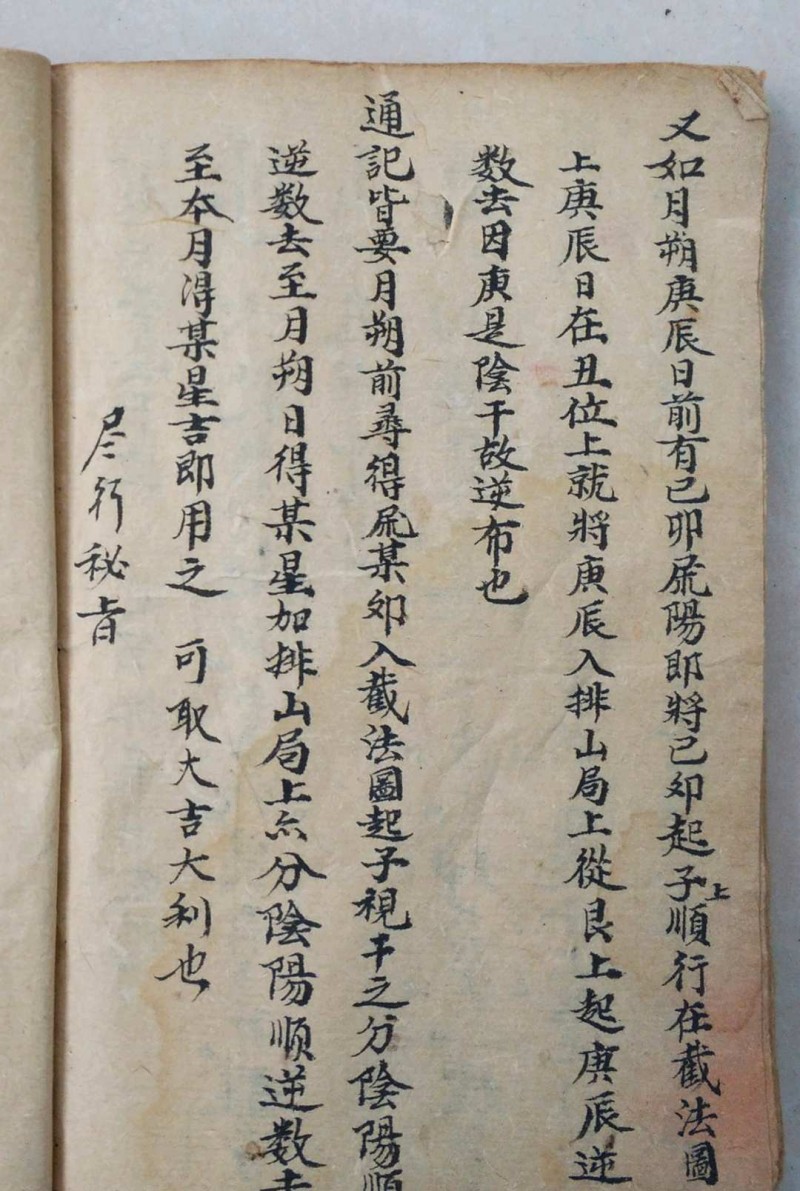 又如月朔庚辰日前有己卯屬陽即將己卯起子上順行在截法圖
上庚辰日在丑位上就將庚辰入排山局上從艮上起庚辰逆
数去因庚是陰干故逆布也
通記皆要月朔前尋得屬某卯入截法圖起子視干之分陰陽順
逆数去至月朔日得某星加排山局上亦分陰陽順逆数去
至本月得某星吉即用之 可取大吉大利也
尽行秘旨